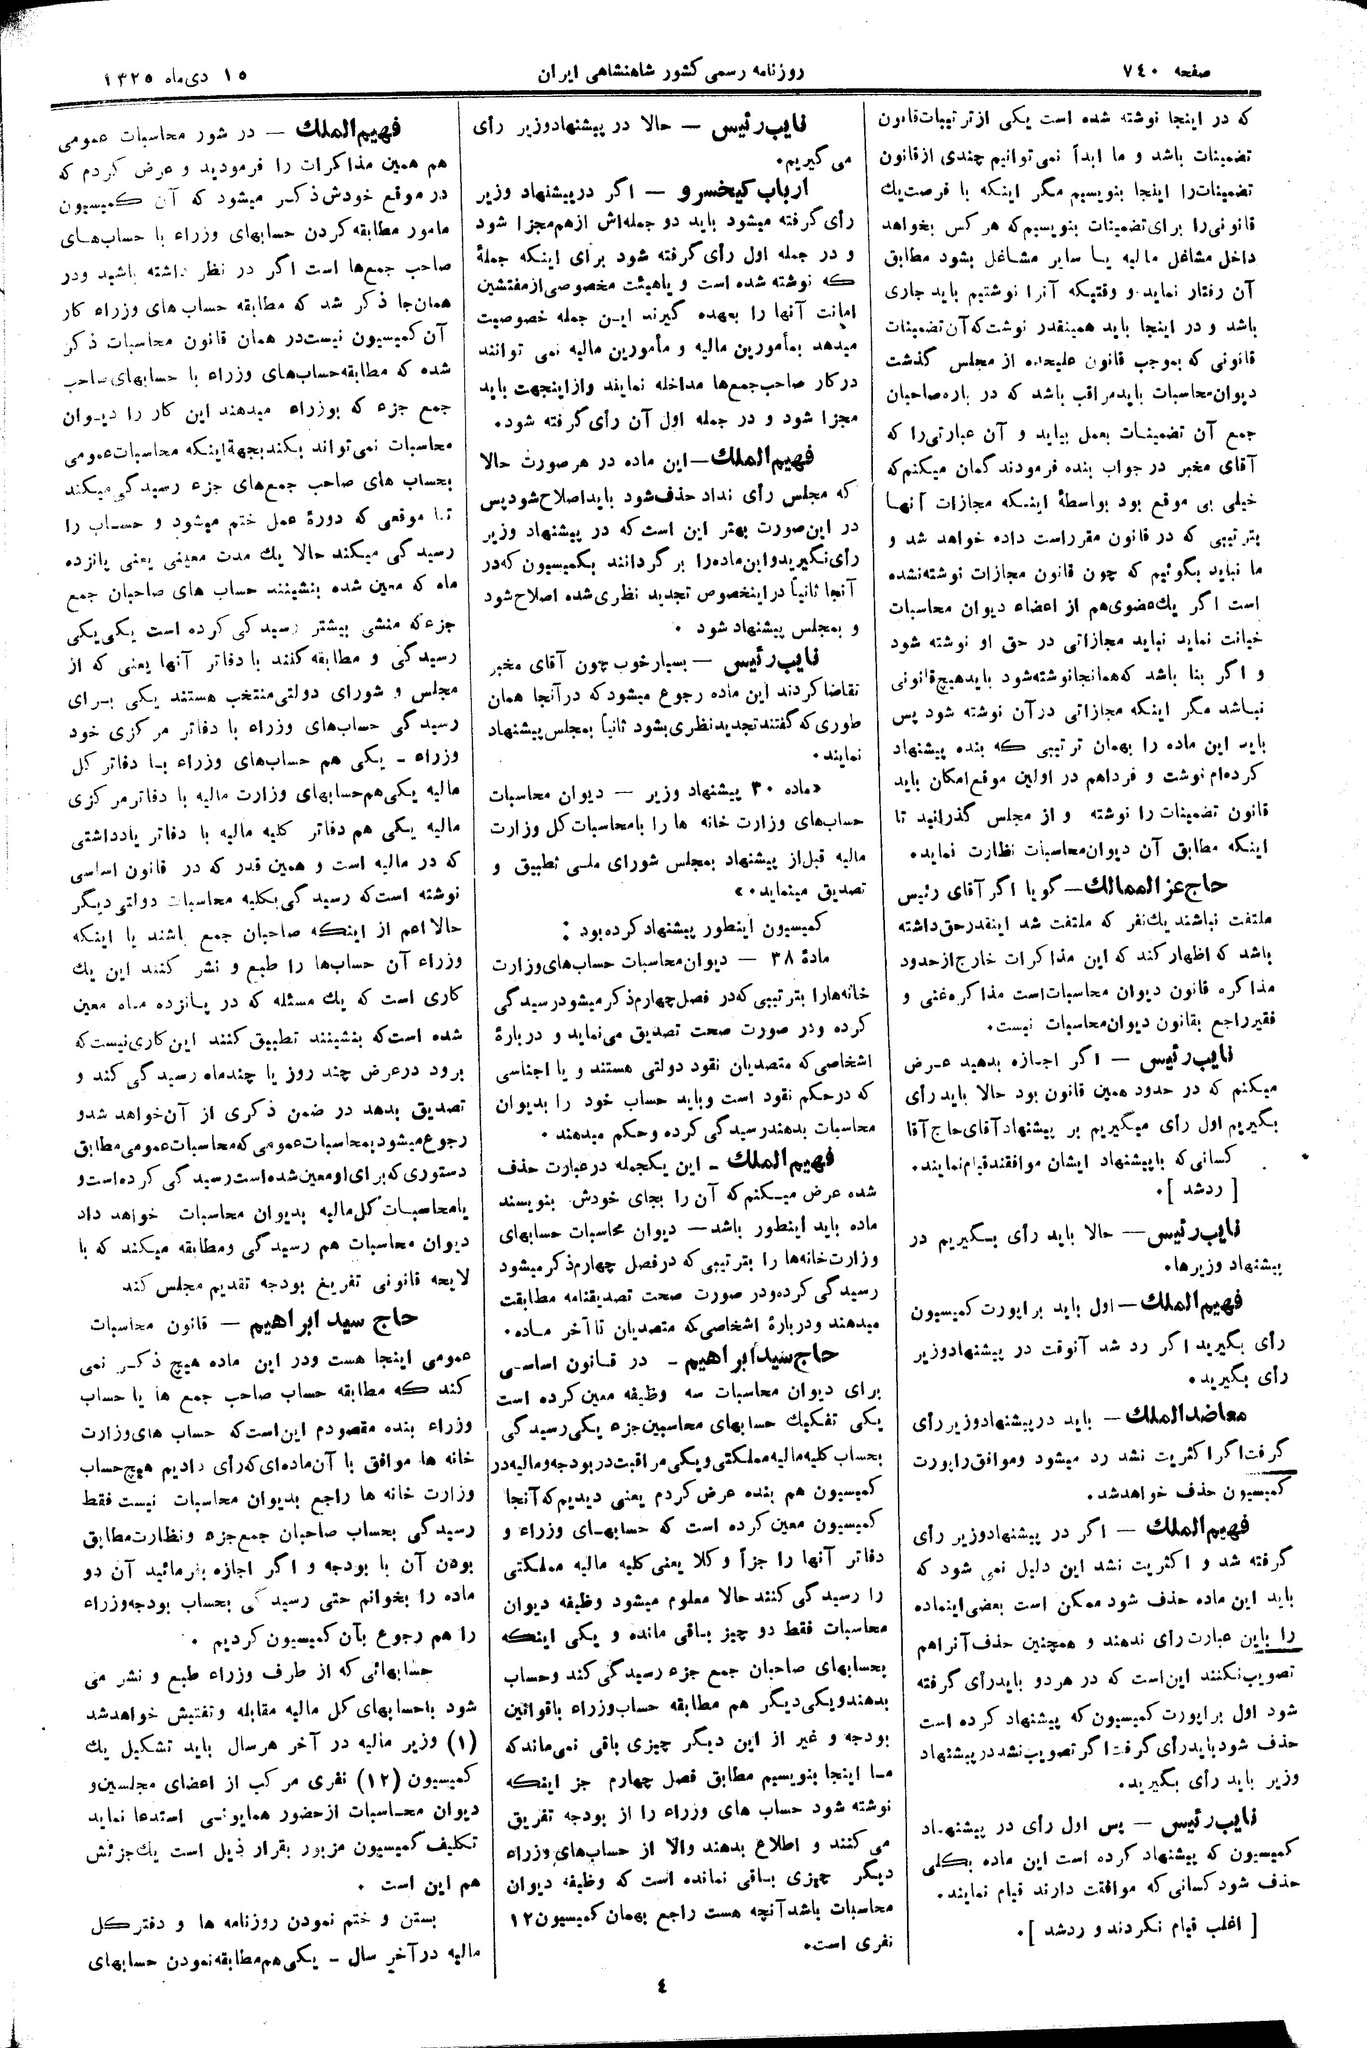 صفحه ۷۴۰
روزنامه رسمی کشور شاهنشاهی ایران
۱۵ دی‌ماه ۱۳۲۵
که در اینجا نوشته شده است یکی از ترتیبات قانون
تضمینات باشد و ما ابداً نمی‌توانیم چندی از قانون
تضمینات را اینجا بنویسیم مگر اینکه با فرصت یك
قانونی را برای تضمینات بنویسیم که هر کس بخواهد
داخل مشاغل مالیه یا سایر مشاغل بشود مطابق
آن رفتار نماید و وقتیکه آنرا نوشتیم باید جاری
باشد و در اینجا باید همینقدر نوشت که آن تضمینات
قانونی که بموجب قانون علیحده از مجلس گذشت
دیوان محاسبات باید مراقب باشد که در باره صاحبان
جمع آن تضمینات بعمل بیاید و آن عبارتی را که
آقای مخبر در جواب بنده فرمودند گمان میکنم که
خیلی بی موقع بود بواسطهٔ اینکه مجازات آنها
بترتیبی که در قانون مقرر است داده خواهد شد و
ما نباید بگوئیم که چون قانون مجازات نوشته نشده
است اگر یك عضوی هم از اعضاء دیوان محاسبات
خیانت نماید نباید مجازاتی در حق او نوشته شود
و اگر بنا باشد که همانجا نوشته شود باید هیچ قانونی
نباشد مگر اینکه مجازاتی در آن نوشته شود پس
باید این ماده را بهمان ترتیبی که بنده پیشنهاد
کرده‌ام نوشت و فردا هم در اولین موقع امکان باید
قانون تضمینات را نوشته و از مجلس گذرانید تا
اینکه مطابق آن دیوان محاسبات نظارت نماید.
حاج عز الممالك — گویا اگر آقای رئیس
ملتفت نباشند یك نفر که ملتفت شد اینقدر حق داشته
باشد که اظهار کند که این مذاکرات خارج از حدود
مذاکره قانون دیوان محاسبات است مذاکره غنی و
فقیر راجع بقانون دیوان محاسبات نیست.
نایب رئیس — اگر اجازه بدهید عرض
میکنم که در حدود همین قانون بود حالا باید رأی
بگیریم اول رأی میگیریم بر پیشنهاد آقای حاج آقا
کسانی که با پیشنهاد ایشان موافقند قیام نمایند.
[ رد شد ].
نایب رئیس — حالا باید رأی بگیریم در
پیشنهاد وزیرها.
فهیم الملك — اول باید بر اپورت کمیسیون
رأی بگیرید اگر رد شد آنوقت در پیشنهاد وزیر
رأی بگیرید.
معاضد الملك — باید در پیشنهاد وزیر رأی
گرفت اگر اکثریت نشد رد میشود و موافق راپورت
کمیسیون حذف خواهد شد.
فهیم الملك — اگر در پیشنهاد وزیر رأی
گرفته شد و اکثریت نشد این دلیل نمی شود که
باید این ماده حذف شود ممکن است بعضی این ماده
را باین عبارت رأی ندهند و همچنین حذف آنرا هم
تصویب نکنند این است که در هر دو باید رأی گرفته
شود اول بر اپورت کمیسیون که پیشنهاد کرده است
حذف شود باید رأی گرفت اگر تصویب نشد در پیشنهاد
وزیر باید رأی بگیرید.
نایب رئیس — پس اول رأی در پیشنهاد
کمیسیون که پیشنهاد کرده است این ماده بکلی
حذف شود کسانی که موافقت دارند قیام نمایند.
[ اغلب قیام نکردند و رد شد ].
نایب رئیس — حالا در پیشنهاد وزیر رأی
می گیریم.
ارباب کیخسرو — اگر در پیشنهاد وزیر
رأی گرفته میشود باید دو جمله‌اش از هم مجزا شود
و در جمله اول رأی گرفته شود برای اینکه جملهٔ
که نوشته شده است و یا هیئت مخصوصی از مفتشین
امانت آنها را بعهده گیرند این جمله خصوصیت
میدهد بمأمورین مالیه و مأمورین مالیه نمی توانند
در کار صاحب جمع‌ها مداخله نمایند و از اینجهت باید
مجزا شود و در جمله اول آن رأی گرفته شود.
فهیم الملك — این ماده در هر صورت حالا
که مجلس رأی نداد حذف شود باید اصلاح شود پس
در این صورت بهتر این است که در پیشنهاد وزیر
رأی نگیرید و این ماده را بر گردانند بکمیسیون که در
آنجا ثانیاً در اینخصوص تجدید نظری شده اصلاح شود
و بمجلس پیشنهاد شود .
نایب رئیس — بسیار خوب چون آقای مخبر
تقاضا کردند این ماده رجوع میشود که در آنجا همان
طوری که گفتند تجدید نظری بشود ثانیاً بمجلس پیشنهاد
نمایند.
«ماده ۳۰ پیشنهاد وزیر — دیوان محاسبات
حساب‌های وزارت خانه ها را با محاسبات کل وزارت
مالیه قبل از پیشنهاد بمجلس شورای ملی تطبیق و
تصدیق مینماید.»
کمیسیون اینطور پیشنهاد کرده بود :
مادهٔ ۳۸ — دیوان محاسبات حساب‌های وزارت
خانه‌ها را بترتیبی که در فصل چهارم ذکر میشود رسیدگی
کرده و در صورت صحت تصدیق می‌نماید و در بارهٔ
اشخاصی که متصدیان نقود دولتی هستند و یا اجناسی
که در حکم نقود است و باید حساب خود را بدیوان
محاسبات بدهند رسیدگی کرده و حکم میدهند .
فهیم الملك — این یکجمله در عبارت حذف
شده عرض میکنم که آن را بجای خودش بنویسند
ماده باید اینطور باشد — دیوان محاسبات حسابهای
وزارت خانه‌ها را بترتیبی که در فصل چهارم ذکر میشود
رسیدگی کرده و در صورت صحت تصدیقنامه مطابقت
میدهند و در بارهٔ اشخاصی که متصدیان تا آخر ماده.
حاج سید ابراهیم — در قانون اساسی
برای دیوان محاسبات سه وظیفه معین کرده است
یکی تفکیك حسابهای محاسبین جزء یکی رسیدگی
بحساب کلیه مالیه مملکتی و یکی مراقبت در بودجه و مالیه در
کمیسیون هم بنده عرض کردم یعنی دیدیم که آنجا
کمیسیون معین کرده است که حسابهای وزراء و
دفاتر آنها را جزأ و کلا یعنی کلیه مالیه مملکتی
را رسیدگی کنند حالا معلوم میشود وظیفه دیوان
محاسبات فقط دو چیز باقی مانده و یکی اینکه
بحسابهای صاحبان جمع جزء رسیدگی کند و حساب
بدهند و یکی دیگر هم مطابقه حساب وزراء با قوانین
بودجه و غیر از این دیگر چیزی باقی نمی‌ماند که
ما اینجا بنویسیم مطابق فصل چهارم جز اینکه
نوشته شود حساب های وزراء را از بودجه تفریق
می کنند و اطلاع بدهند والا از حساب‌های وزراء
دیگر چیزی باقی نمانده است که وظیفه دیوان
محاسبات باشد آنچه هست راجع بهمان کمیسیون ۱۲
نفری است.
فهیم الملك — در شور محاسبات عمومی
هم همین مذاکرات را فرمودید و عرض کردم که
در موقع خودش ذکر میشود که آن کمیسیون
مامور مطابقه کردن حسابهای وزراء با حساب‌های
صاحب جمع‌ها است اگر در نظر داشته باشید و در
همان‌جا ذکر شد که مطابقه حساب های وزراء کار
آن کمیسیون نیست در همان قانون محاسبات ذکر
شده که مطابقه حساب‌های وزراء با حسابهای صاحب
جمع جزء که بوزراء میدهند این کار را دیوان
محاسبات نمی‌تواند بکند بجهة اینکه محاسبات عمومی
بحساب های صاحب جمع‌های جزء رسیدگی میکند
تا موقعی که دورهٔ عمل ختم میشود و حساب را
رسیدگی میکند حالا یك مدت معینی یعنی پانزده
ماه که معین شده بنشینند حساب های صاحبان جمع
جزء که منشی بیشتر رسیدگی کرده است یکی یکی
رسیدگی و مطابقه کنند با دفاتر آنها یعنی که از
مجلس و شورای دولتی منتخب هستند یکی برای
رسیدگی حساب‌های وزراء با دفاتر مرکزی خود
وزراء - یکی هم حساب‌های وزراء با دفاتر کل
مالیه یکی هم حسابهای وزارت مالیه با دفاتر مرکزی
مالیه یکی هم دفاتر کلیه مالیه با دفاتر یادداشتی
که در مالیه است و همین قدر که در قانون اساسی
نوشته است که رسیدگی بکلیه محاسبات دولتی دیگر
حالا اعم از اینکه صاحبان جمع باشند یا اینکه
وزراء آن حساب‌ها را طبع و نشر کنند این یك
کاری است که یك مسئله که در پانزده ماه معین
شده است که بنشینند تطبیق کنند این کاری نیست که
برود در عرض چند روز یا چند ماه رسیدگی کند و
تصدیق بدهد در ضمن ذکری از آن خواهد شد و
رجوع میشود بمحاسبات عمومی که محاسبات عمومی مطابق
دستوری که برای او معین شده است رسیدگی کرده است و
یا محاسبات کل مالیه بدیوان محاسبات خواهد داد
دیوان محاسبات هم رسیدگی و مطابقه میکند که با
لایحه قانونی تفریغ بودجه تقدیم مجلس کند
حاج سید ابراهیم — قانون محاسبات
عمومی اینجا هست و در این ماده هیچ ذکر نمی
کند که مطابقه حساب صاحب جمع ها با حساب
وزراء بنده مقصودم این است که حساب های وزارت
خانه ها موافق با آن ماده‌ای که رأی دادیم هیچ حساب
وزارت خانه ها راجع بدیوان محاسبات نیست فقط
رسیدگی بحساب صاحبان جمع جزء و نظارت مطابق
بودن آن با بودجه و اگر اجازه بفرمائید آن دو
ماده را بخوانم حتی رسیدگی بحساب بودجه وزراء
را هم رجوع بآن کمیسیون کردیم .
حسابهائی که از طرف وزراء طبع و نشر می
شود با حسابهای کل مالیه مقابله و تفتیش خواهد شد
(۱) وزیر مالیه در آخر هر سال باید تشکیل یك
کمیسیون (۱۲) نفری مرکب از اعضای مجلسین و
دیوان محاسبات از حضور همایونی استدعا نماید
تکلیف کمیسیون مزبور بقرار ذیل است یك جزئش
هم این است .
بستن و ختم نمودن روزنامه ها و دفتر کل
مالیه در آخر سال - یکی هم مطابقه نمودن حسابهای
٤